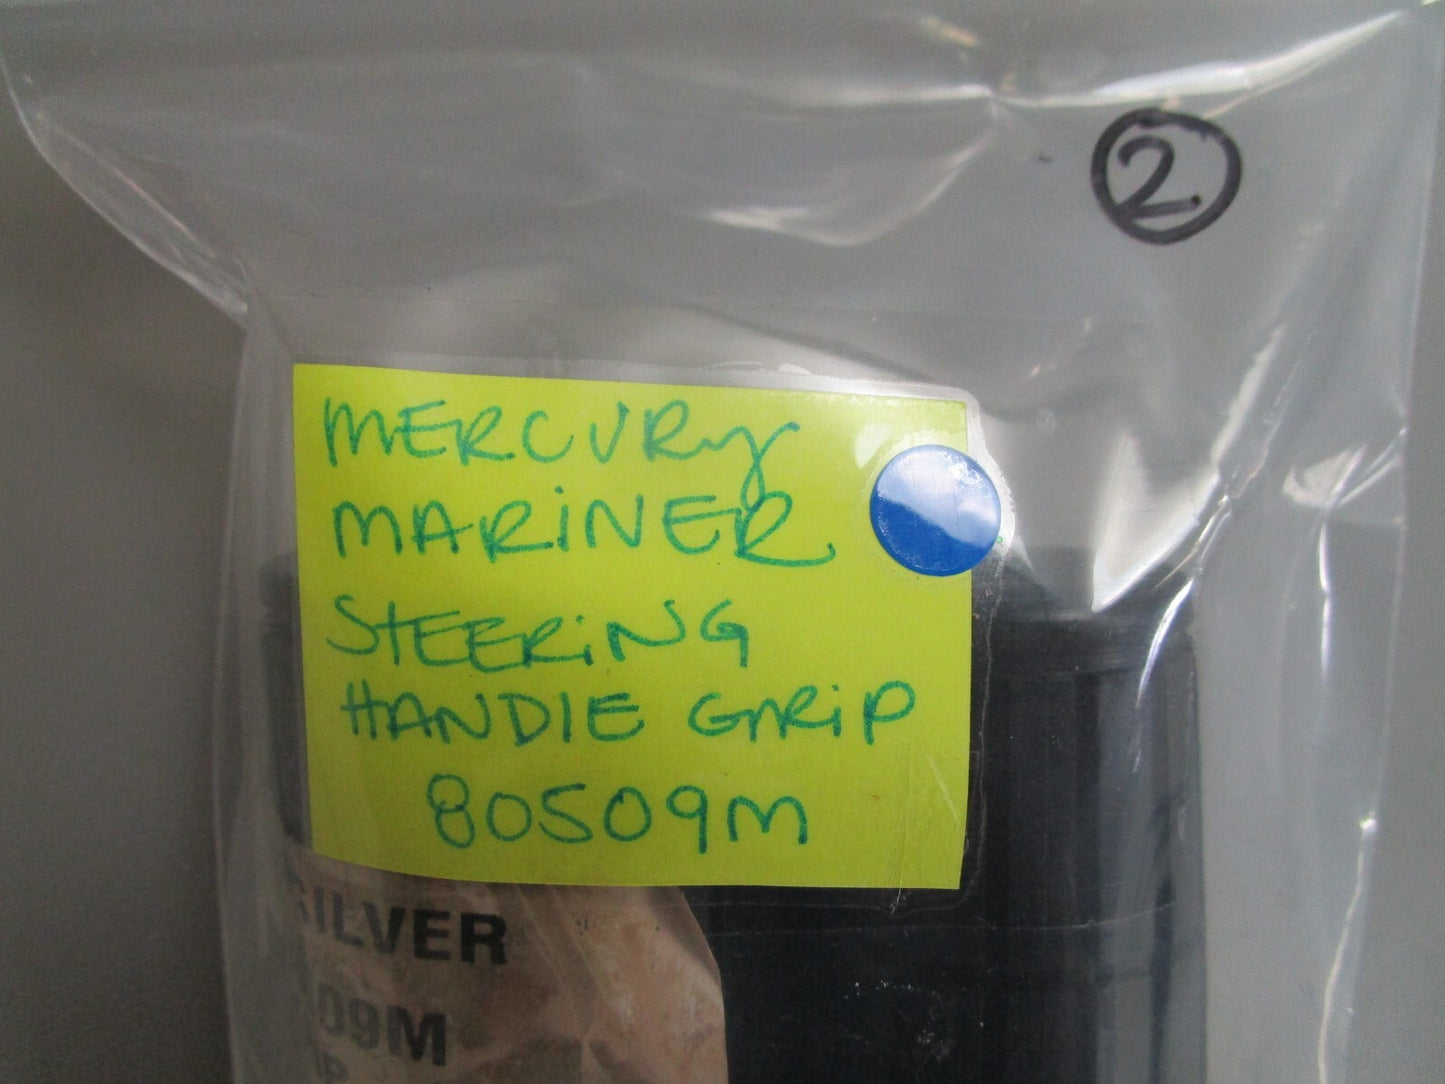 2
MERCURY
MARINER
STEERING
HANDLE GRIP
80509M
SILVER
09M